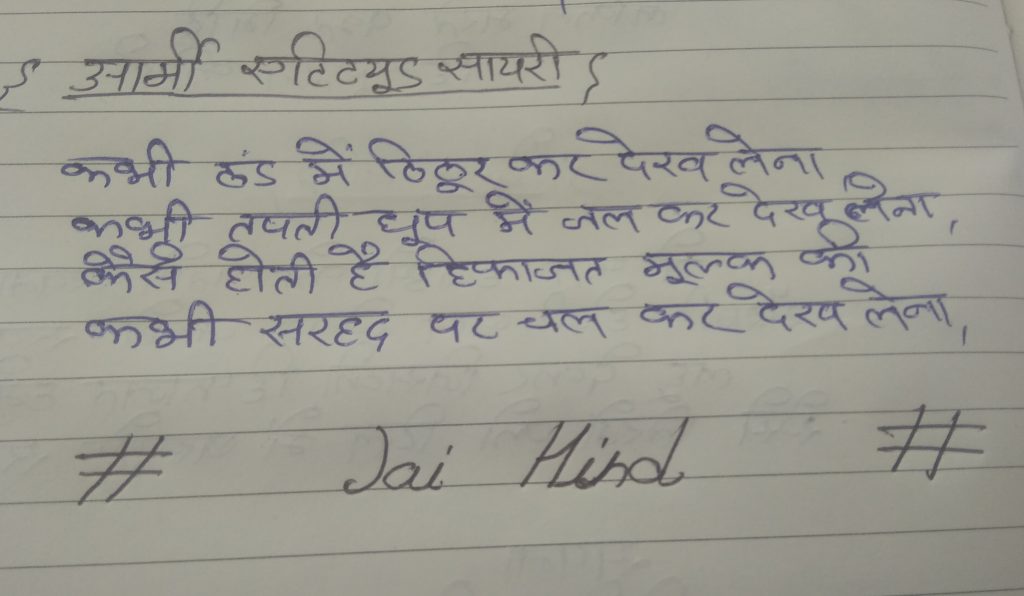 { आर्मी एटिटयूड सायरी }
कभी ठंड में ठिठूर कर देख लेना
कभी तपती धूप में जल कर देख लेना,
कैसे होती है हिफाजत मूलक की
कभी सरहद पर चल कर देख लेना,
# Jai Hind #